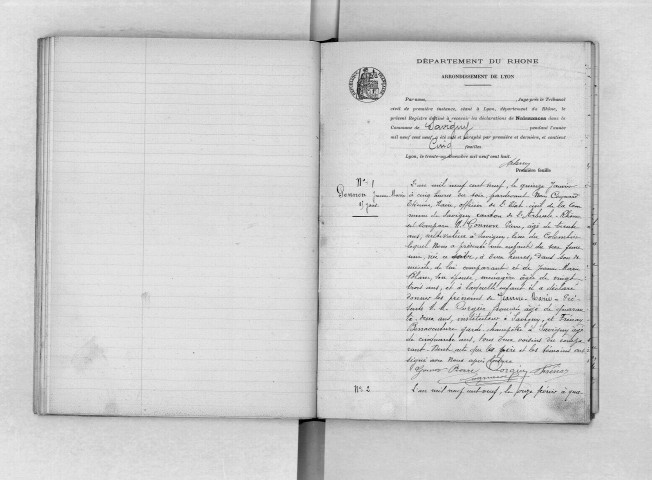 DÉPARTEMENT DU RHONE
ARRONDISSEMENT DE LYON
Par nous, Juge près le Tribunal
civil de première instance, séant à Lyon, département du Rhône, le
présent Registre destiné à recevoir les déclarations de Naissances dans la
Commune de Savigny pendant l'année
mil neuf cent neuf a été coté et paraphé par première et dernière, et contient
Cinq feuilles
Lyon, le trente-un décembre mil neuf cent huit.
Première feuille
No. 1
Jeanne Marie
L'an mil neuf cent neuf, le quinze Janvier
à cinq heures du soir, pardevant Nous
Maire, officier de l'Etat civil de la com
mune de Savigny canton de l'Arbresle, Rhône
est comparu Pierre, âgé de trente
ans, cultivateur à Savigny, lieu du Colombier
lequel Nous a présenté une enfant du sexe fémi
nin, née à heures, dans son do
micile, de lui comparant et de Jeanne Marie
Blanc, son épouse, ménagère âgée de vingt
trois ans, et à laquelle enfant il a déclaré
donner les prénoms de Jeanne-Marie. Pré
sents M.M. âgé de quaran
te deux ans, instituteur à Savigny, et
Bonnaventure garde champêtre à Savigny âgé
de cinquante ans, tous deux du compa
rant. Dont acte que le père et les témoins ont
signé avec Nous après lecture
No. 2
L'an mil neuf cent neuf, le